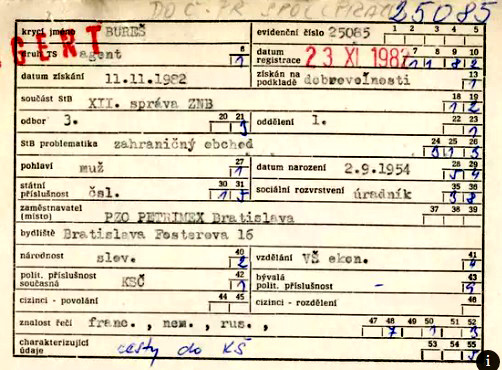 25085
AGENT
krycí jméno BUREŠ evidenční číslo 25085 1 2 3 4 5
druh TS agent 6 1 datum registrace 23 XI. 1982 7 8 9 10 1 1 8 2
datum získání 11.11.1982 získán na podkladě dobrovolnosti 13 1
součást StB XII. správa ZNB 18 19 1 2
odbor 3. 20 21 3 oddělení 1. 22 23 1
StB problematika zahraničný obchod 24 25 26
pohlaví muž 27 1 datum narození 2.9.1954 28 29 5 4
státní příslušnost čsl. 30 31 sociální rozvrstvení úradník 35 36 3 8
zaměstnavatel (místo) PZO PETRIMEX Bratislava 37 38 39
bydliště Bratislava Fosterova 16
národnost slov. 40 2 vzdělání VŠ ekon. 41
polit. příslušnost současná KSČ 42 1 bývalá polit. příslušnost - 43
cizinci - povolání 44 45 cizinci - rozdělení 46
znalost řečí franc., nem., rus., 47 48 49 50 51 52
charakterizující údaje cesty do KŠ 53 54 55